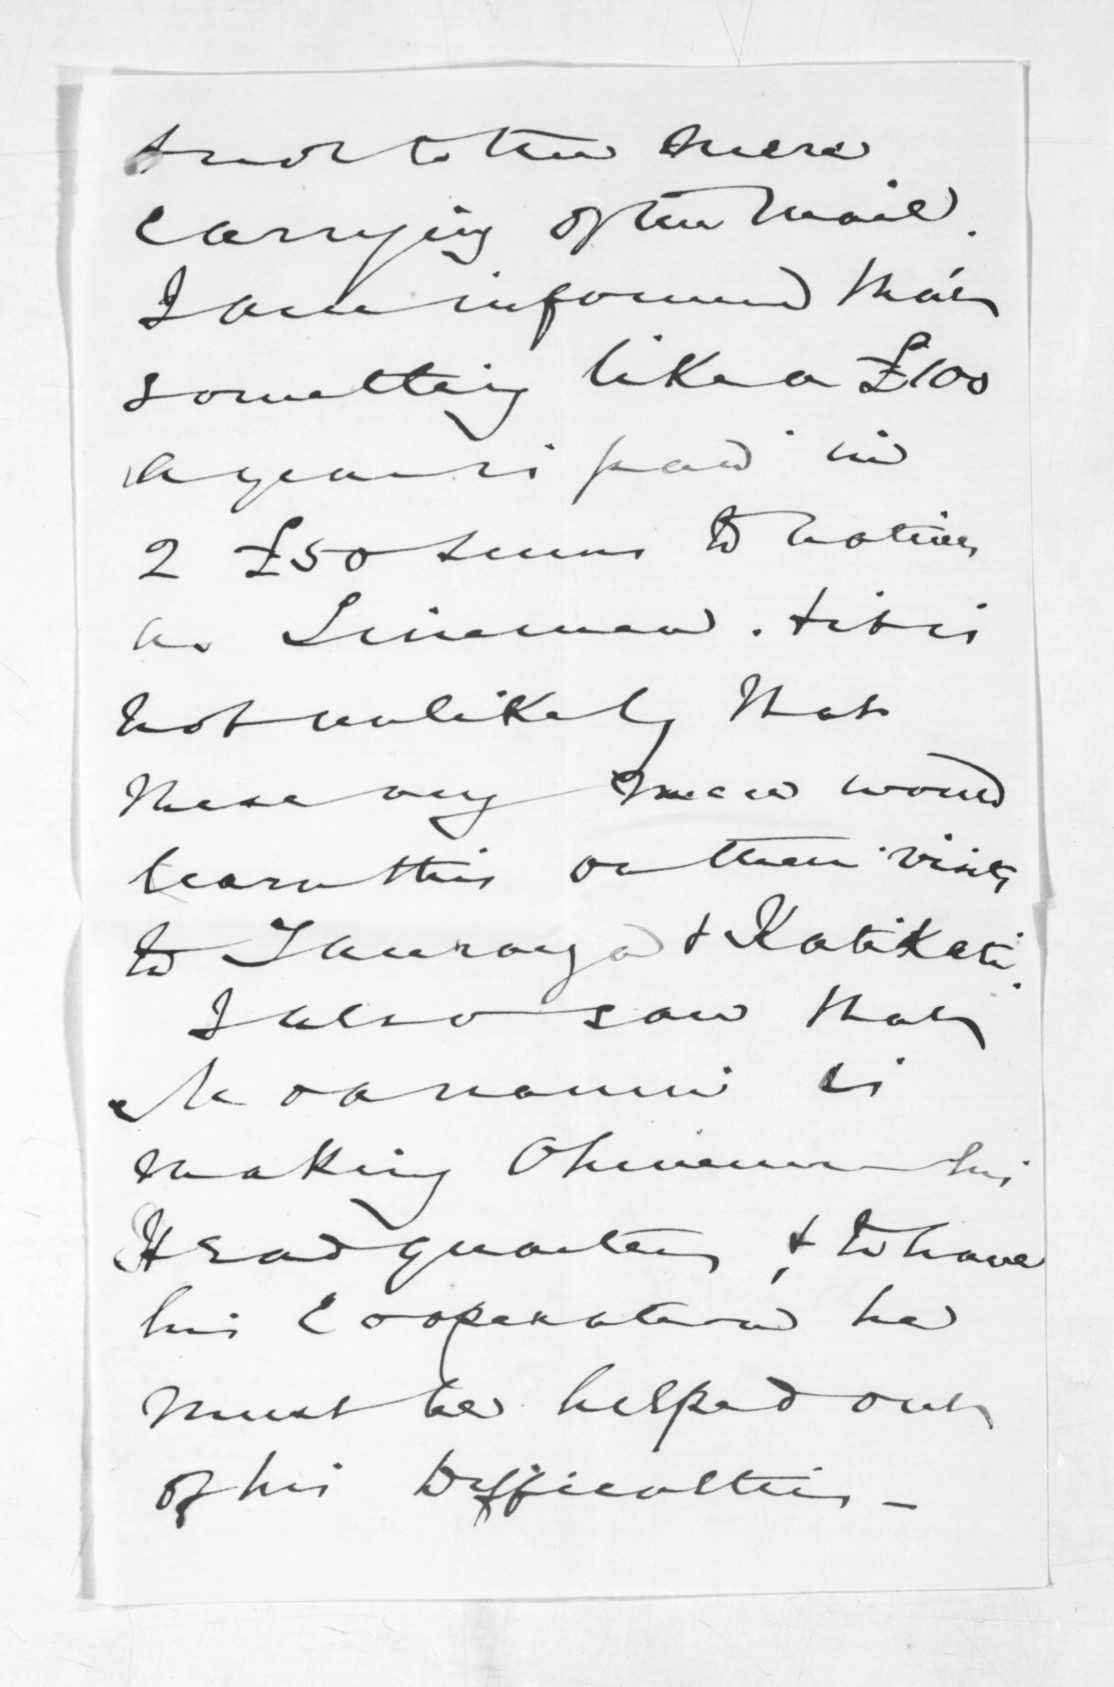 & not to the mere
carrying of the mail.
I am informed that
something like a £100
a year is paid in
2 £50 sums to natives
as Linemen. & it is
not unlikely that
these very men would
learn this on their visits
to Tauranga & Katikati.
I also saw that
is
making Ohinemuri his
Head quarters, & to have
his Cooperation he
must be helped out
of his Difficulties -